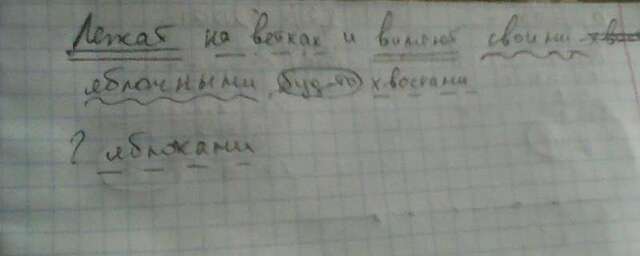 Лежат на ветках и виляют своими
яблочными будто хвостами
? яблоками